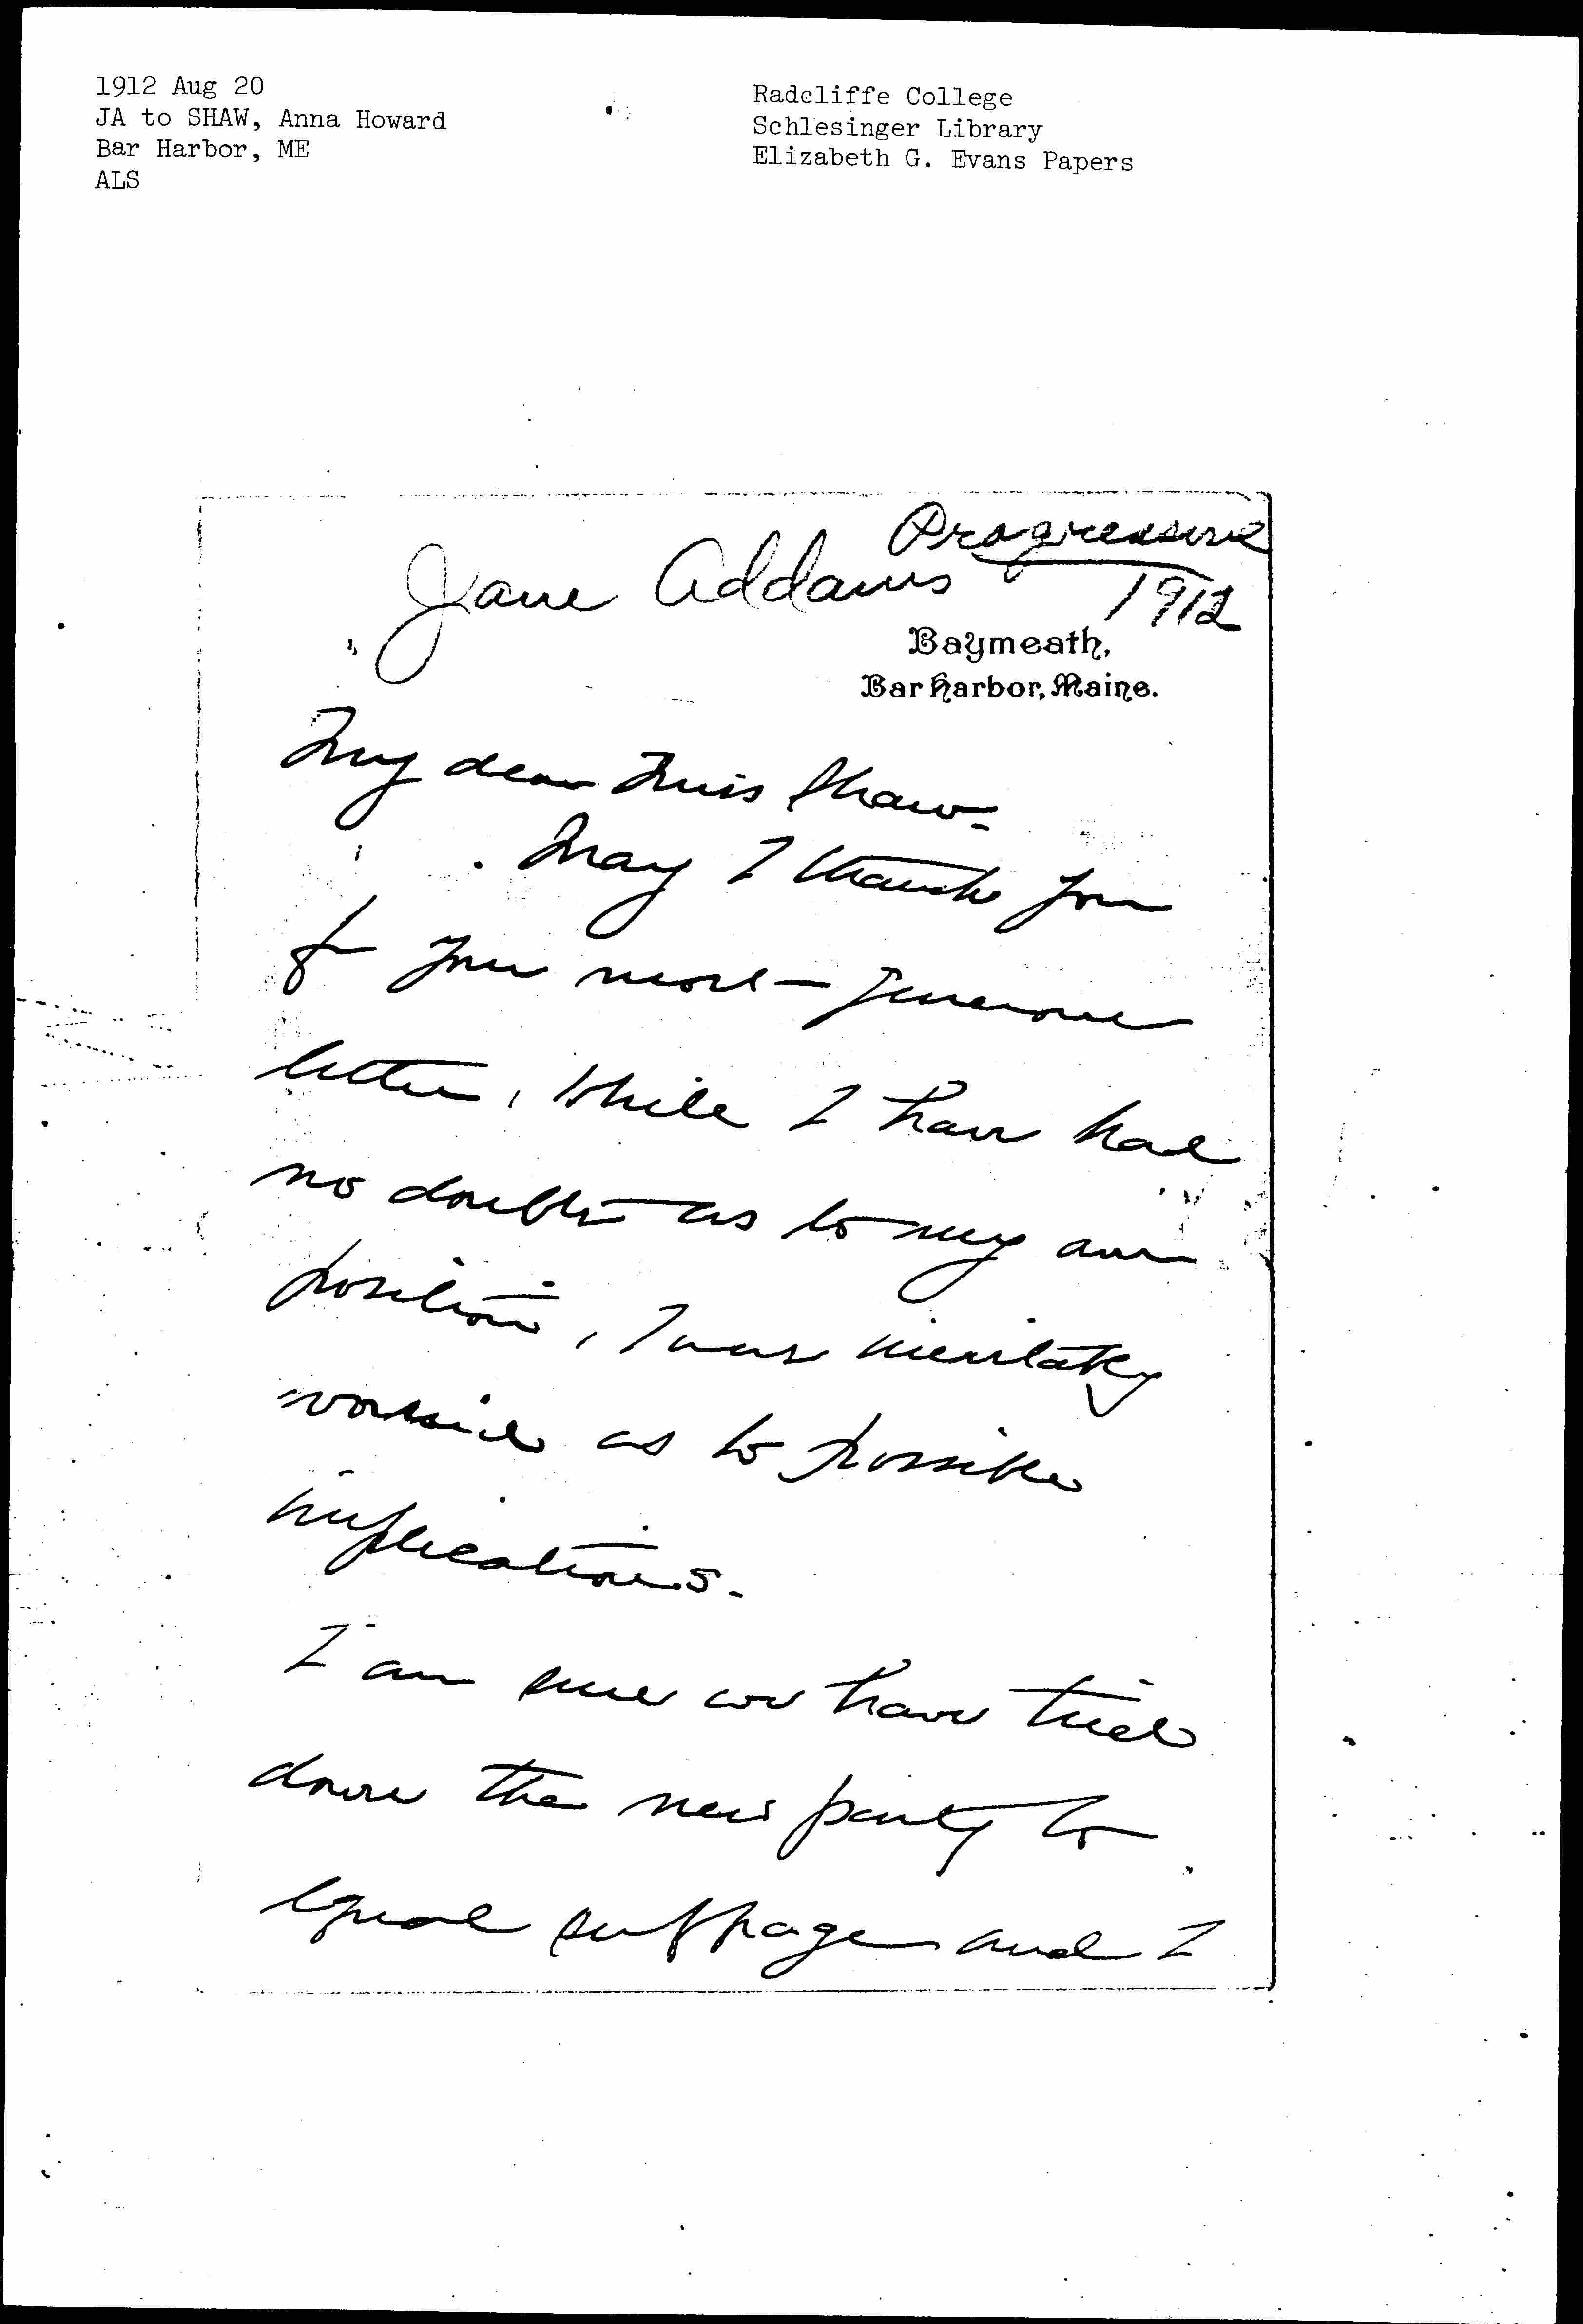 1912 Aug 20
JA to SHAW, Anna Howard
Bar Harbor, ME
ALS
Radcliffe College
Schlesinger Library
Elizabeth G. Evans Papers
Progressive
Jane Addams 1912
Baymeath,
Bar Harbor, Maine.
My dear Miss Shaw-
May I thank you
for your most generous
letter, While I have had
no doubts as to my own
position, I was inevitably
worried as to possible
implications.
I am sure we have tied
down the new party to
equal suffrage and I